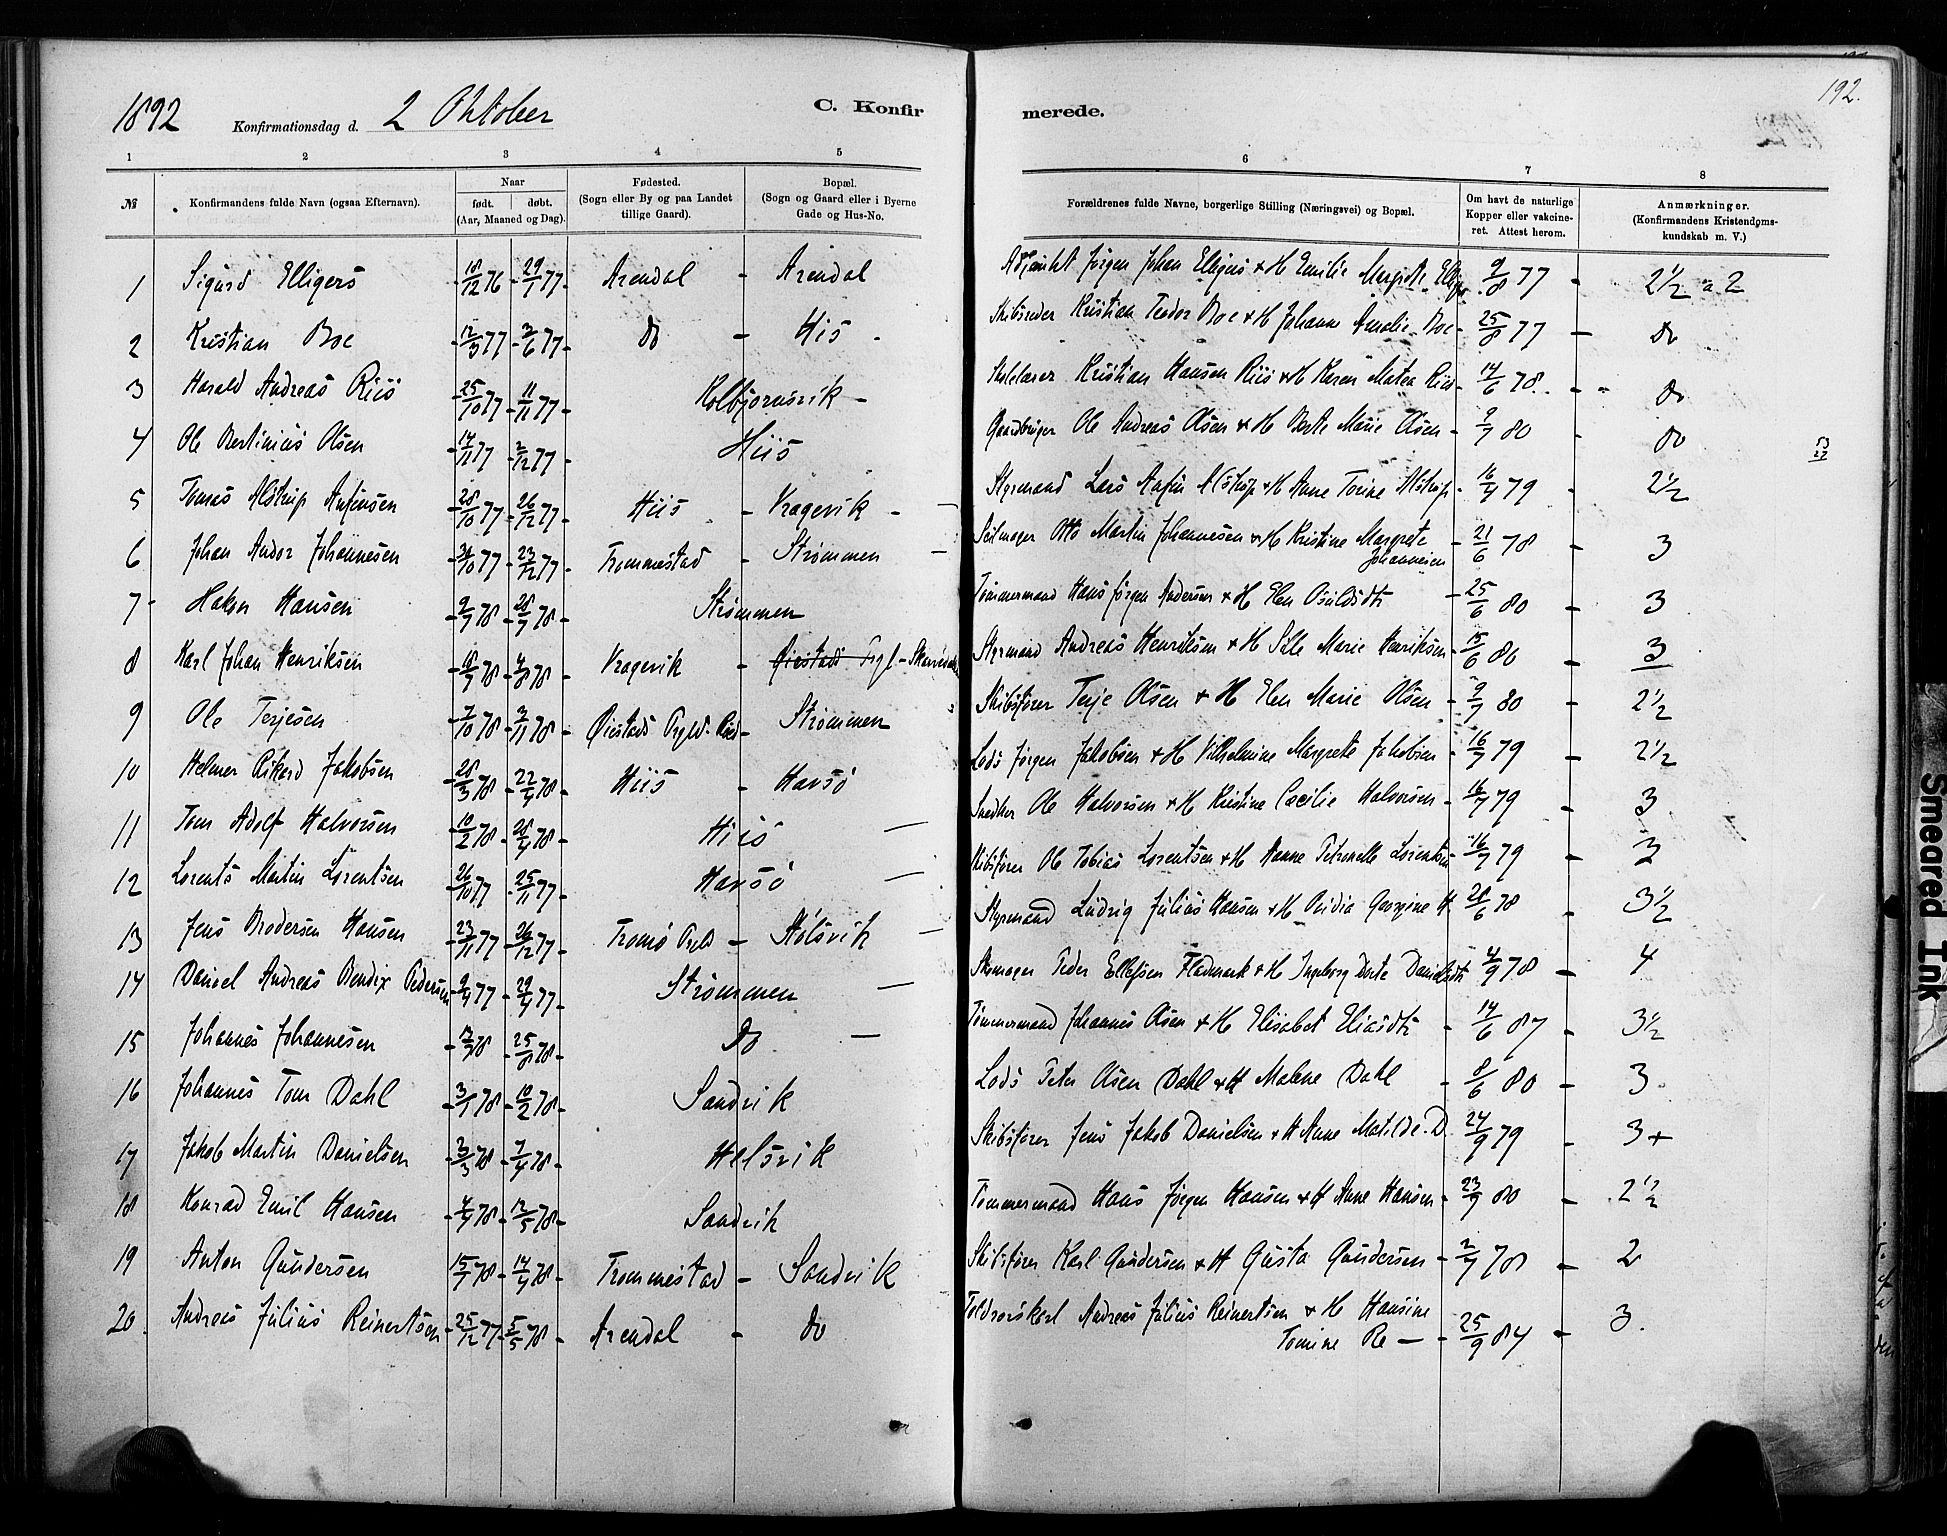 192.
1892 Konfirmationsdag d. 2 Oktober C. Konfirmerede.
1 2 3 4 5 6 7 8
№ Konfirmandens fulde Navn (ogsaa Efternavn). Naar født. døbt. (Aar, Maaned og Dag). Fødested. (Sogn eller By og paa Landet tillige Gaard). Bopæl. (Sogn og Gaard eller i Byerne Gade og Hus-No. Forældrenes fulde Navne, borgerlige Stilling (Næringsvei) og Bopæl. Om havt de naturlige Kopper eller vakcineret. Attest herom. Anmærkninger. (Konfirmandens Kristendomskundskab m. V.)
1 Sigurd Elligers 18/12 76 - 29/1 77 - Arendal - Arendal Adjunkt Jørgen Johan Elligers & H Emilie Margrete Elligers 9/8 77 - 2½ a 2
2 Kristian Boe 12/3 77 - 3/6 77 - do - His - Skibsreder Kristian Teodor Boe & H Johanne Amalie Boe - 25/8 77 - do
3 Harald Andreas Riis 25/10 77 - 11/11 77 - Kolbjørnsvik - Kristian Hansen Riis & H Karen Matea Riis - 14/6 78 - do
4 Ole Bertinius Olsen 14/11 77 - 2/12 77 - Hiis Gaardbruger Ole Andreas Olsen & H Berte Marie Olsen - 9/7 80 - do
5 Tomas Alstrup Anfinsen 28/10 77 - 26/12 77 - Hiis - Vragevik - Styrmand Lars Anfin Alstrup & H Anne Torine Alstrup - 16/7 79 - 2½
6 Johan Andor Johannesen 30/10 77 - 23/12 77 - Trommestad - Strømmen - Seilmager Otto Martin Johannesen & H Kristine Margrete Johannesen - 21/6 78 - 3
7 - Hakon Hansen 9/7 78 - 28/7 78 - Strømmen Tømmermand Hans Jørgen Andersen & H Elen Osuldsdtr - 25/6 80 - 3
8 Karl Johan Henriksen 10/7 78 - 4/8 78 - Vragevik - Øiestads Prgl - Styrmand Andreas Henriksen & H Sille Marie Henriksen - 15/6 86 - 3
9 Ole Terjesen 7/10 78 - 3/11 78 - Øiestads Prgld. - Strømmen Skibsfører Terje Olsen & H Elen Marie Olsen - 9/7 80 - 2½
10 Helmer Rikard Jakobsen 28/3 78 - 22/4 78 - Hiis - Havsö Lods Jørgen Jakobsen & H Vilhelmine Margrete Jakobsen - 16/7 79 - 2½
11 Tom Adolf Halvorsen 10/2 78 - 28/4 78 - Hiis - Snedker Ole Halvorsen & H Kirstine Cæcilie Halvorsen - 16/7 79 - 3
12 Lorents Martin Lorentsen 26/10 77 - 25/11 77 - Havsö - Skibsfører Ole Tobias Lorentsen & H Hanne Petronelle Lorentsen - 16/7 79 - 3
13 Jens Brodersen Hansen 23/11 77 - 26/12 77 - Tromö Prgld - Stölsvik - Styrmand Ludvig Julius Hansen & H Ovidia Georgine H. 28/6 78 - 3½
14 Daniel Andreas Bendix Pedersen 9/4 77 - 29/4 77 - Strømmen - Skomager Peder Ellefsen Flademark & H Ingeborg Dorte Danielsdtr 4/9 78 - 4
15 Johannes Johannesen 78 - 25/8 78 - Do - Tømmermand Johannes Olsen & H Elisabet Eliasdtr - 14/6 87 - 3½
16 Johannes Tom Dahl 3/1 78 - 10/2 78 - Sandvik Lods Peter Olsen Dahl & H Malene Dahl - 8/6 80 - 3.
17 Jakob Martin Danielsen 3/3 78 - 7/4 78 - Helsvik Skibsfører Jens Jakob Danielsen & H Anne Matilde D. 24/9 79 - 3+
18 Konrad Emil Hansen 4/4 78 - 12/5 78 - Sandvik Tømmermand Hans Jørgen Hansen & H Anne Hansen - 23/7 80 - 2½
19 Anton Gundersen 15/1 78 - 14/4 78 - Trommestad - Sandvik Skibsfører Karl Gundersen & H Gusta Gundersen - 2/7 78 - 2
20. Andreas Julius Reinertsen - 25/12 77 - 5/5 78 - Arendal - do Toldrorskarl Andreas Julius Reinertsen & H Hansine Tomine Re - 25/9 84 - 3.
Smeared Ink